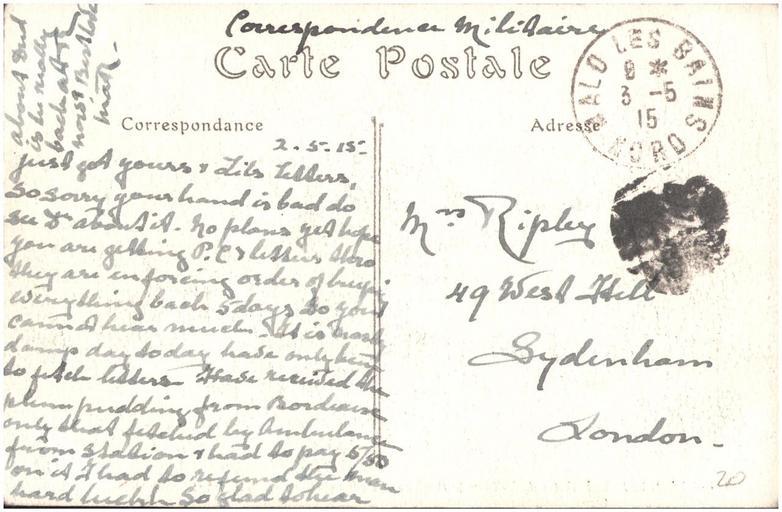 Correspondence Militaire
Carte Postale
Correspondance
Adresse
MALO LES BAINS
8 *
3 -5
15
NORD
2.5.15
Just got yours & Lils letters,
So sorry your hand is bad do
see Dr about it. No plans yet hope
you are getting P.C's & letters tho
they are enforcing order of
everything back 5 days so you
cannot hear much. It is
damp day today have only been
to fetch letters. Have received the
plum pudding from Bordeaux
only that fetched by Ambulance
from station & had to pay 5/50
on it I had to refund the man
hard luck. So glad to hear
about
is he really
back at
now? Best love
Mrs Ripley
49 West Hill
Sydenham
London.
20